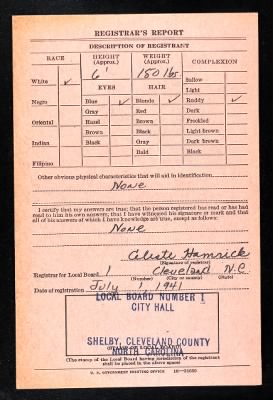 REGISTRAR'S REPORT
DESCRIPTION OF REGISTRANT
RACE HEIGHT (Approx.) WEIGHT (Approx.) COMPLEXION
6' 150 lbs.
White ✓ Sallow
EYES HAIR Light
Negro Blue ✓ Blonde ✓ Ruddy ✓
Gray Red Dark
Oriental Hazel Brown Freckled
Brown Black Light brown
Indian Black Gray Dark brown
Bald Black
Filipino
Other obvious physical characteristics that will aid in identification
None
I certify that my answers are true; that the person registered has read or has had
read to him his own answers; that I have witnessed his signature or mark and that
all of his answers of which I have knowledge are true, except as follows:
None
Celeste Hamrick
(Signature of registrar)
Registrar for Local Board 1 Cleveland N.C.
(Number) (City or county) (State)
Date of registration July 1, 1941
LOCAL BOARD NUMBER 1
CITY HALL
SHELBY, CLEVELAND COUNTY
(STAMP OF LOCAL BOARD)
NORTH CAROLINA
(The stamp of the Local Board having jurisdiction of the registrant
shall be placed in the above space)
U. S. GOVERNMENT PRINTING OFFICE